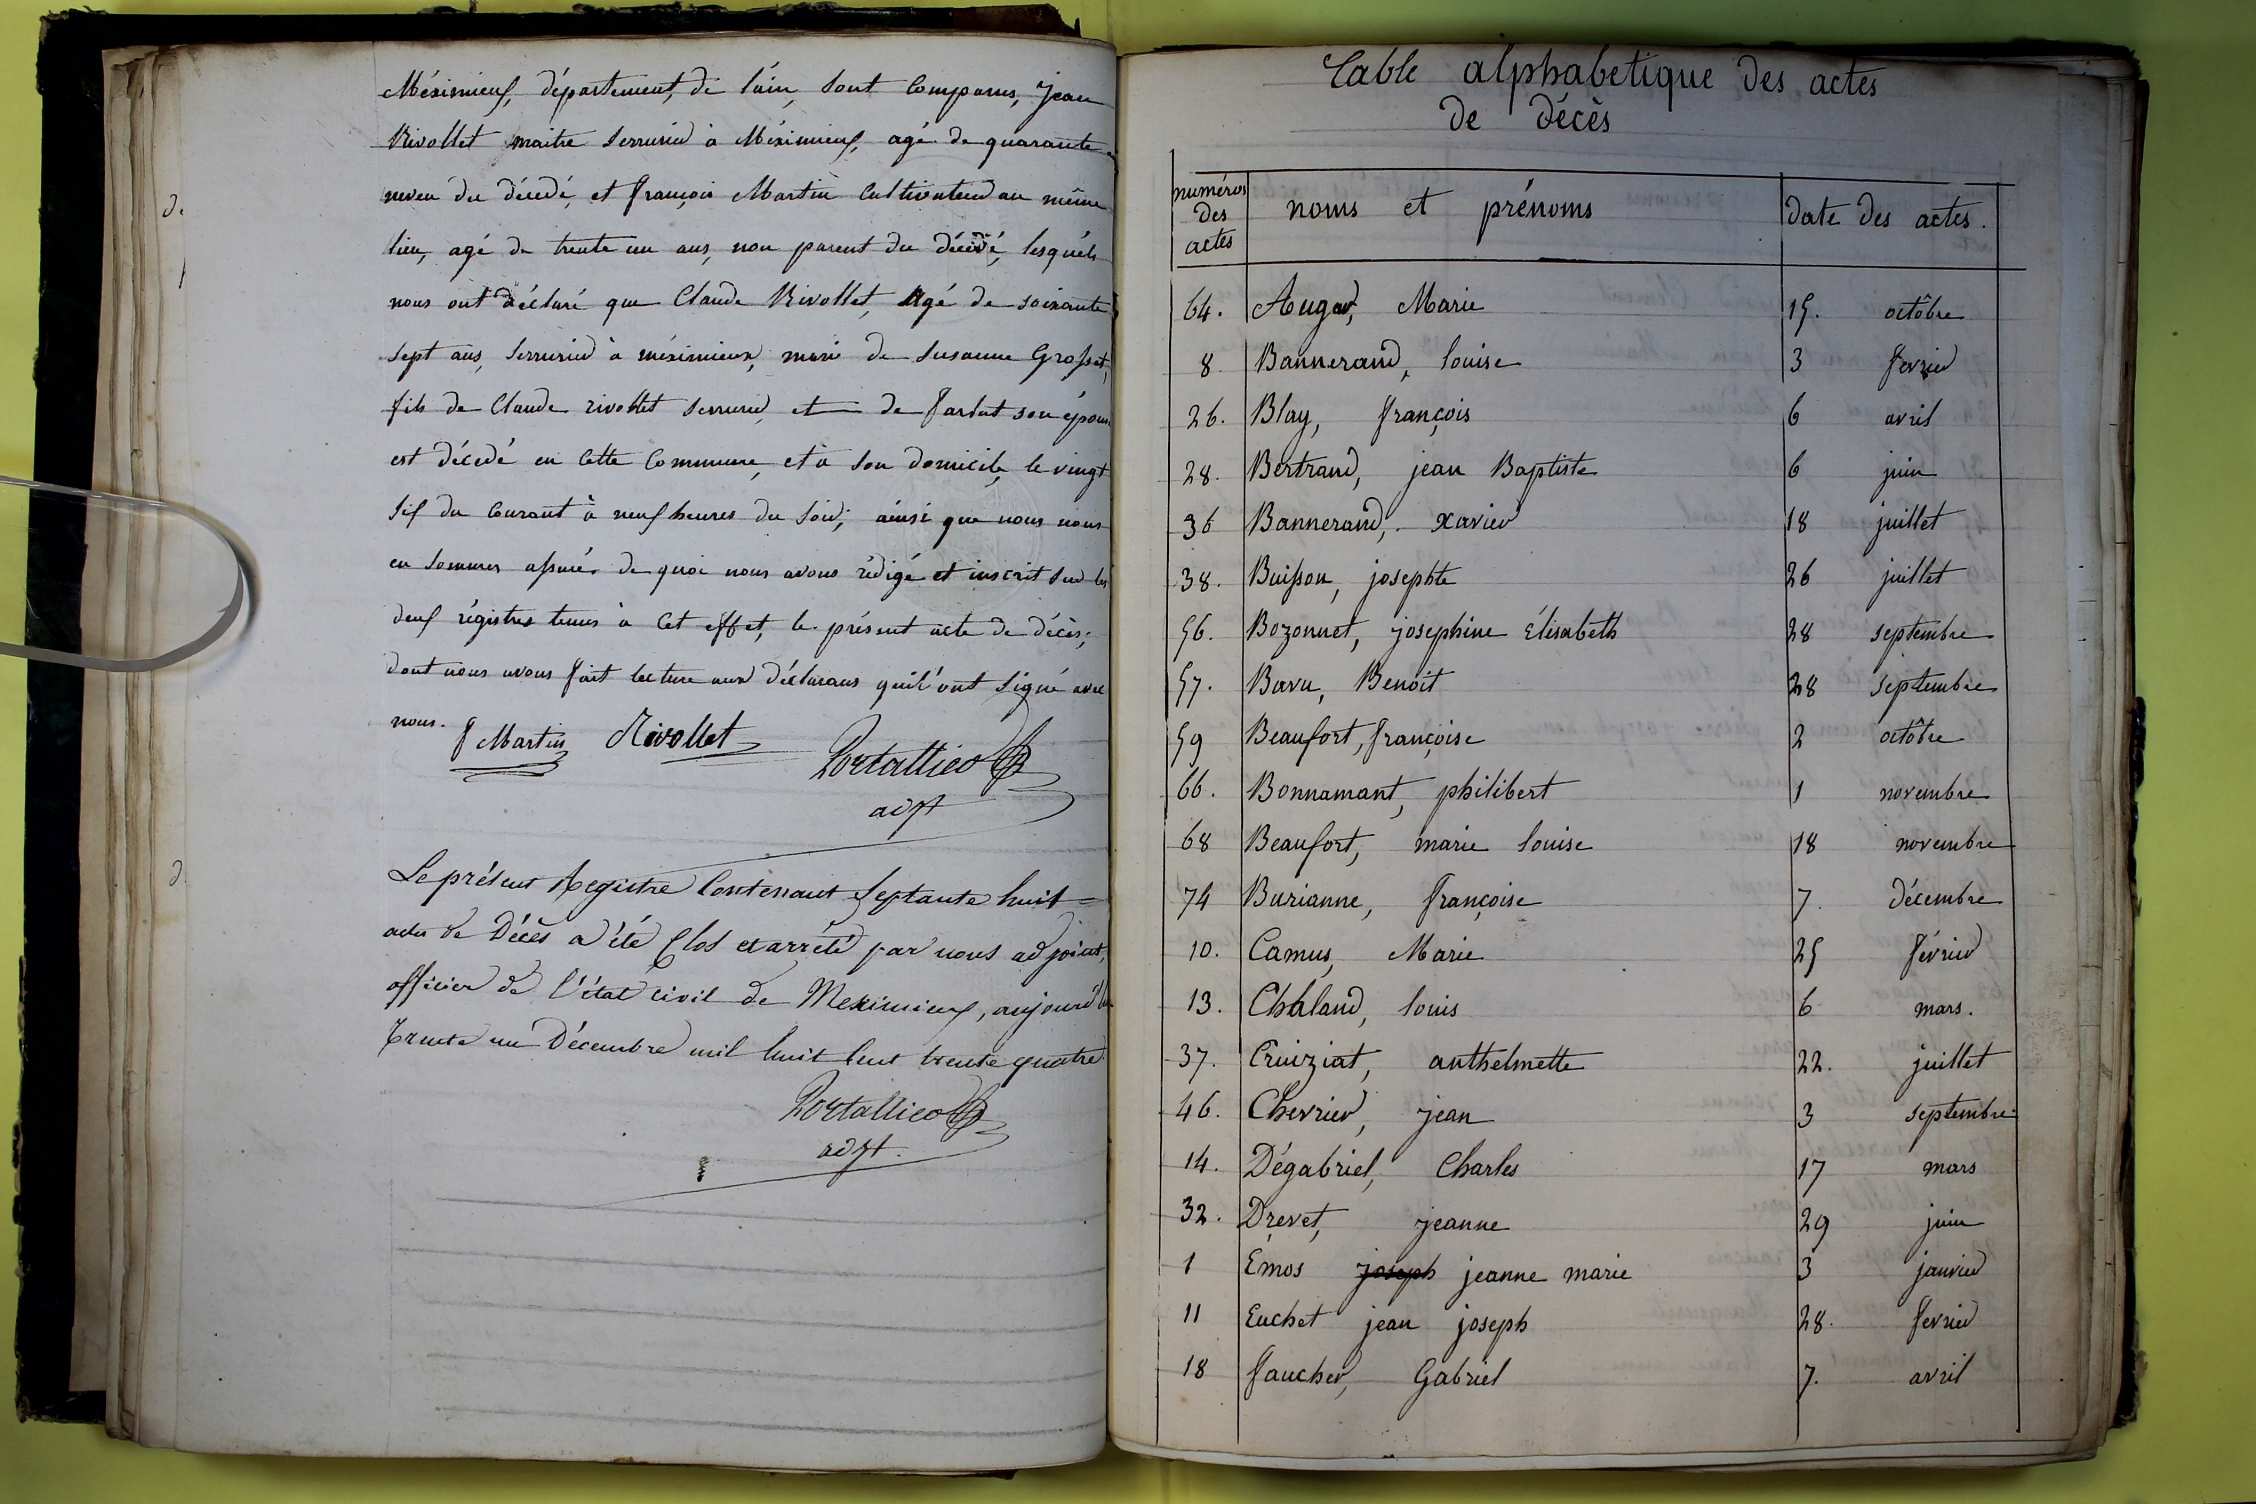 Méximieux, département, de l'ain, sont Comparus, jean
Rivollet maitre serrurier à Méximieux, agé de quarante
neveu du décedé, et françois Martin Cultivateur au même
lieu, agé de trente un ans, non parent du décédé, lesquels
nous ont déclaré que Claude Rivollet, Agé de soixante
sept ans, serrurier à méximieux, mari de Susanne Grosset,
fils de Claude rivollet serrurier, et de farlut son épouse
est décedé en Cette Commune, et à son domicile, le vingt
six du Courant à neuf heures du soir; ainsi que nous nous
en sommes assurés de quoi nous avons rédigé et inscrit sur les
deux régistres tenus à Cet effet, le présent acte de décès;
dont nous avons fait lecture aux déclarans qui l'ont signé avec
nous. f Martin Rivollet Portallier
adjt
Le présent Registre Contenant septante huit
actes de Décès a été Clos et arrêté par nous adjoint,
officier de l'état civil de Meximieux, aujourd'hui
trente un Décembre mil huit Cent trente quatre
Portallier
adjt.
Table alphabetique des actes
de décès
numéros des actes noms et prénoms date des actes.
64. Auger, Marie 15. octôbre
8. Bannerand, louise 3 fevrier
26. Blay, françois 6 avril
28. Bertrand, jean Baptiste 6 juin
36 Bannerand, xavier 18 juillet
38. Buisson, josephte 26 juillet
56. Bozonnet, josephine Élisabeth 28 septembre
57. Bavu, Benoit 28 septembre
59 Beaufort, françoise 2 octôbre
66. Bonnamant, philibert 1 novembre
68 Beaufort, marie louise 18 novembre
74 Burianne, françoise 7. décembre
10. Camus, Marie 25 février
13. Chaland, louis 6 mars.
37. Cruiziat, anthelmette 22. juillet
46. Chevrier, jean 3 septembre
14. Dégabriel, Charles 17 mars
32. Drevet, jeanne 29 juin
1 Emos joseph jeanne marie 3 janvier
11 Euchet jean joseph 28. fevrier
18 faucher, Gabriel 7. avril